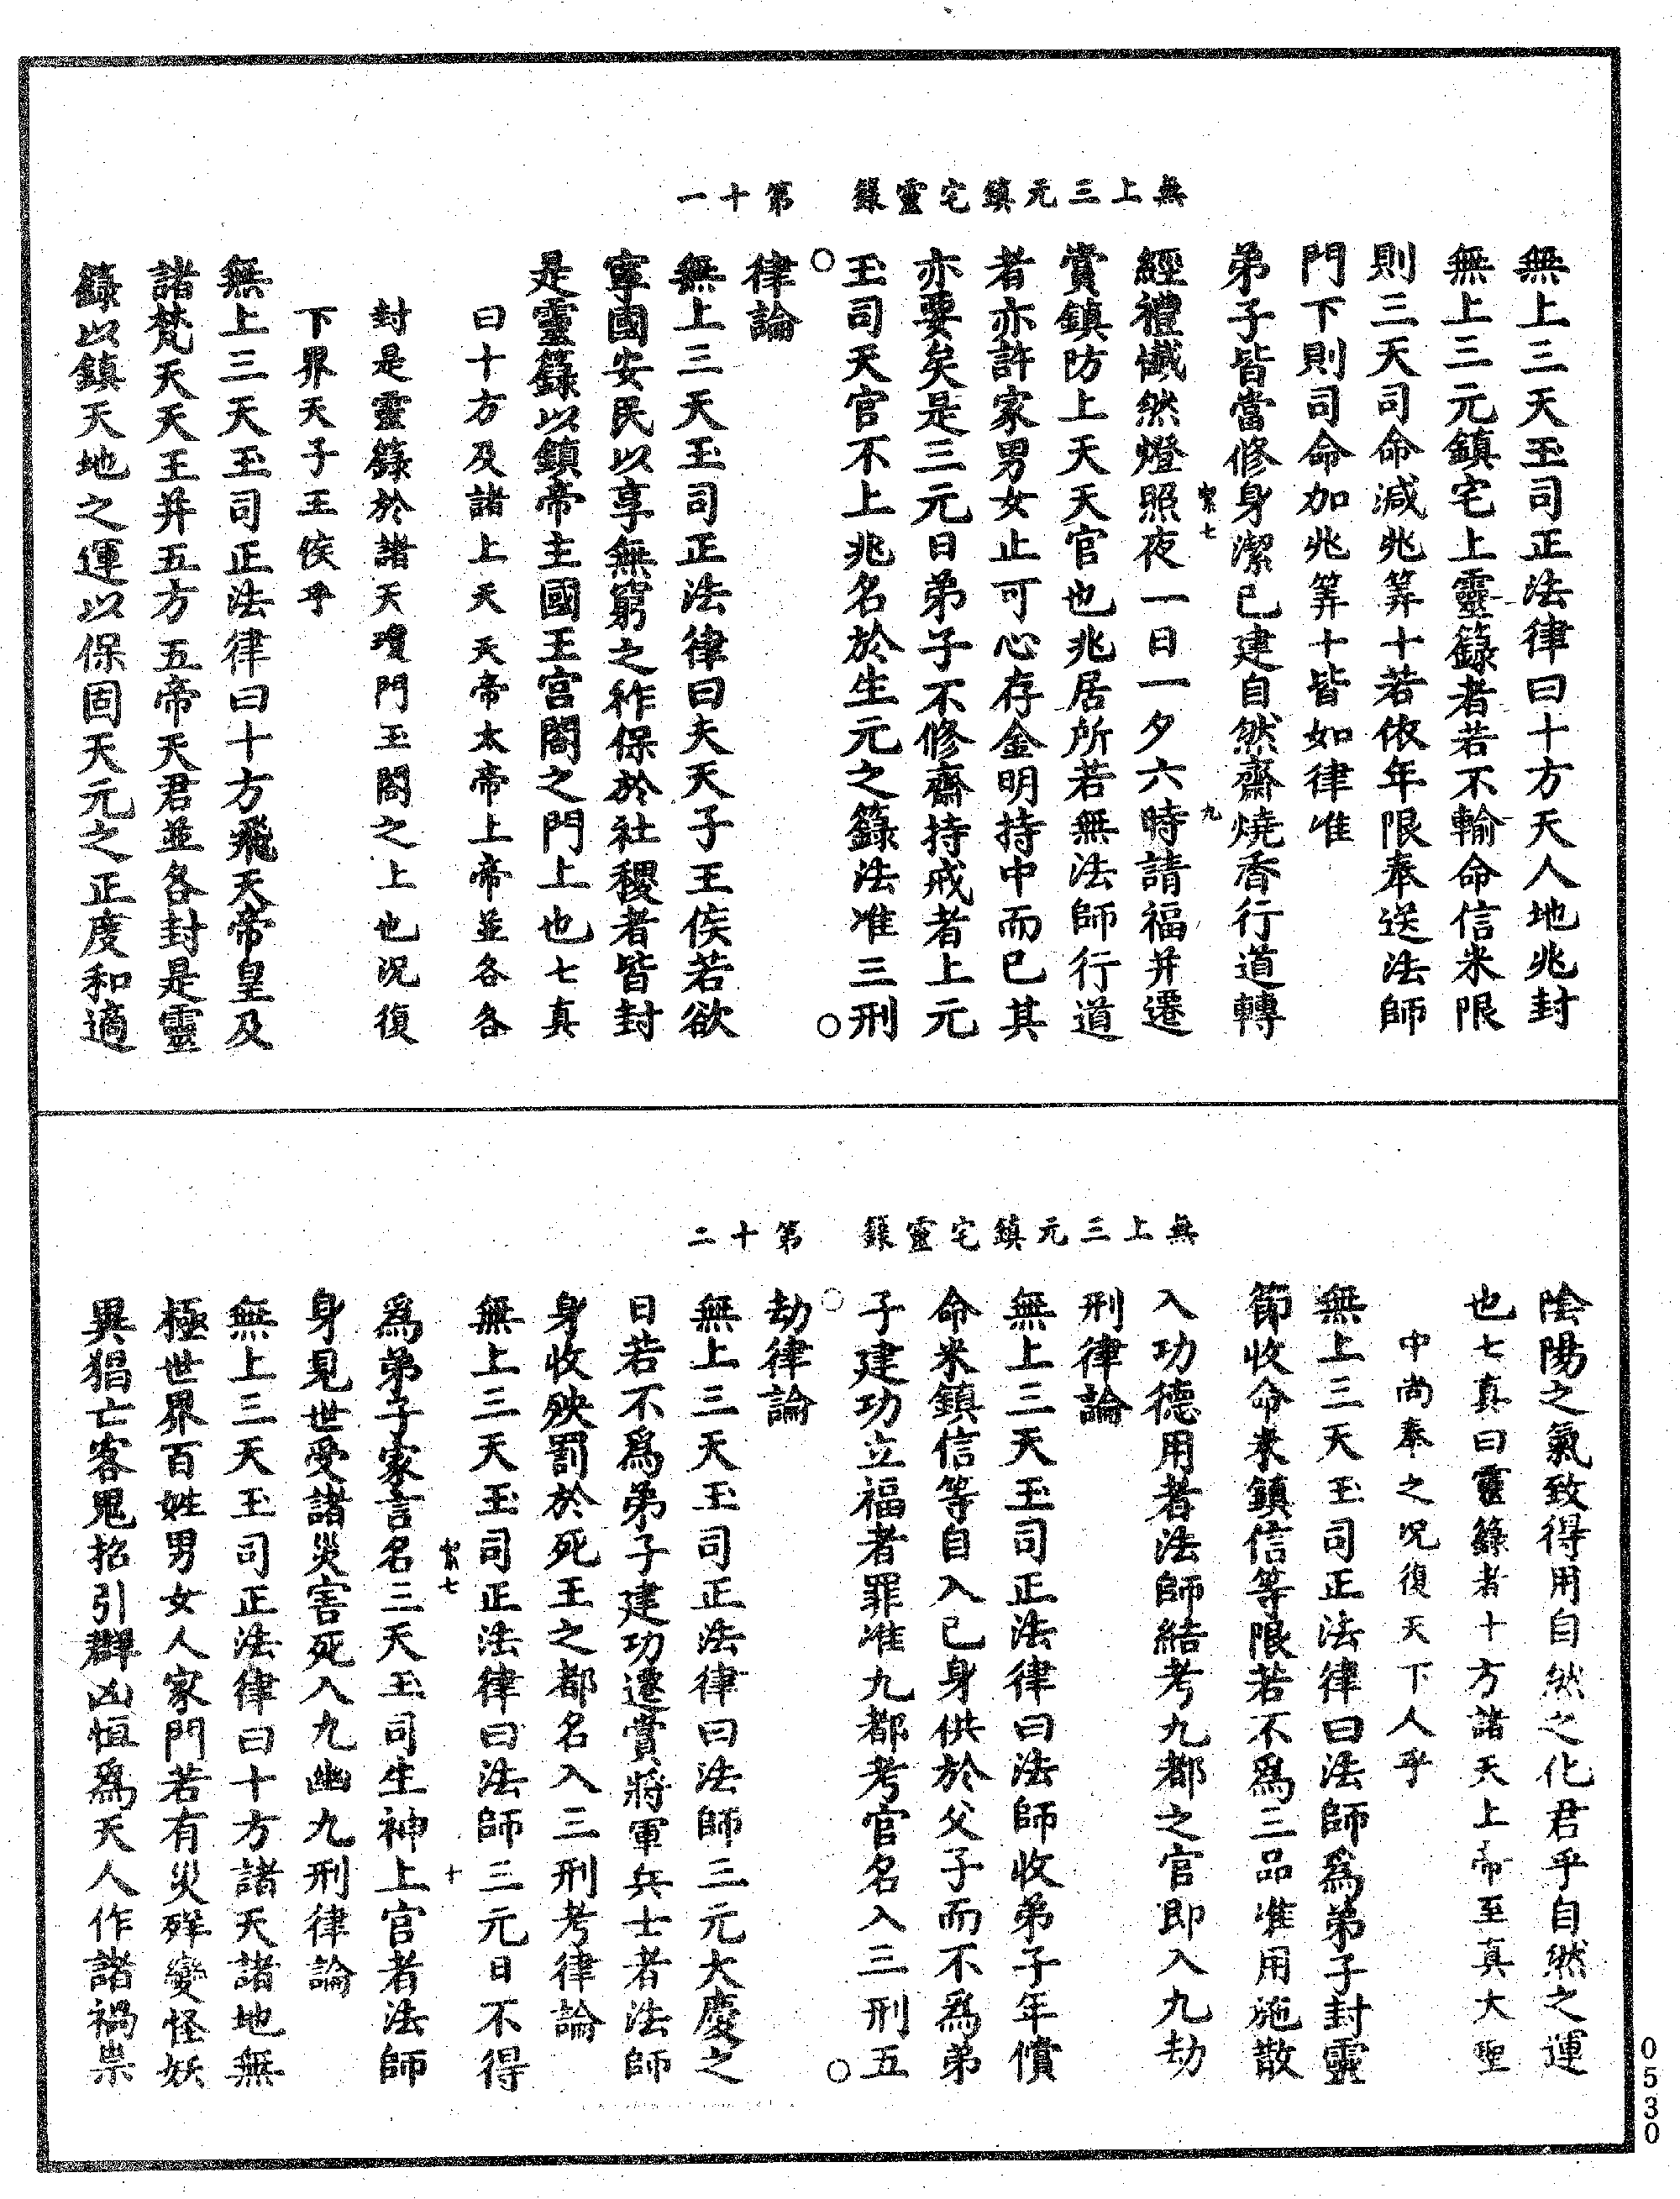 無上三元鎮宅靈籙　第十一
無上三天玉司正法律曰十方天人地兆封
無上三元鎮宅上靈籙者若不輸命信米限
則三天司命減兆筭十若依年限奉送法師
門下則司命加兆筭十皆如律准
弟子皆當修身潔已建自然齋燒香行道轉
經禮懺然燈照夜一日一夕六時請福并遷
賞鎮防上天天官也兆居所若無法師行道
者亦許家男女止可心存金明持中而已其
亦要矣是三元日弟子不修齋持戒者上元
玉司天官不上兆名於生元之籙法准三刑
律論
無上三天玉司正法律曰夫天子王侯若欲
寧國安民以享無窮之祚保於社稷者皆封
是靈籙以鎮帝主國王宮閣之門上也七真
曰十方及諸上天天帝太帝上帝並各各
封是靈籙於諸天瓊門玉閣之上也況復
下界天子王侯乎
無上三天玉司正法律曰十方飛天帝皇及
諸梵天天王并五方五帝天君並各封是靈
籙以鎮天地之運以保固天元之正度和適
無上三元鎮宅靈籙　第十二
陰陽之氣致得用自然之化君乎自然之運
也七真曰靈籙者十方諸天上帝至真大聖
中尚奉之況復天下人乎
無上三天玉司正法律曰法師爲弟子封靈
節收命米鎮信等限若不爲三品准用施散
入功德用者法師結考九都之官即入九劫
刑律論
無上三天玉司正法律曰法師收弟子年償
命米鎮信等自入已身供於父子而不爲弟
子建功立福者罪准九都考官名入三刑五
劫律論
無上三天玉司正法律曰法師三元大慶之
日若不爲弟子建功遷賞將軍兵士者法師
身收殃罰於死王之都名入三刑考律論
無上三天玉司正法律曰法師三元日不得
爲弟子家言名三天玉司生神上官者法師
身見世受諸災害死入九幽九刑律論
無上三天玉司正法律曰十方諸天諸地無
極世界百姓男女人家門若有災殃變怪妖
異猖亡客鬼招引群凶恒爲天人作諸禍祟
0530